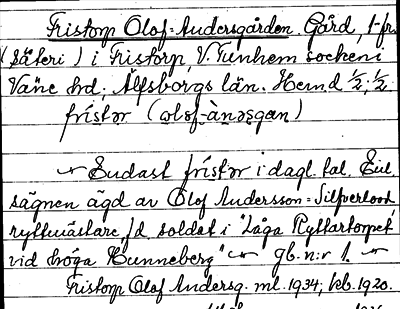 Fristorp Olof-Andersgården Gård, f-fr.
(säteri) i Fristorp, V. Tunhem socken i
Väne hd. Älfsborgs län. Hemd ½, ½.
frístər (ɷlɷf-ànəsgaɳ)
Endast frístər i dagl. tal. Enl.
sägnen ägd av Olof Andersson-Silfverlood
ryttmästare, f.d. soldat i "Låga Ryttartorpet
vid höga Hunneberg" gb.n:r 1.
Fristorp Olof Andersg. ml. 1934; kb. 1920.